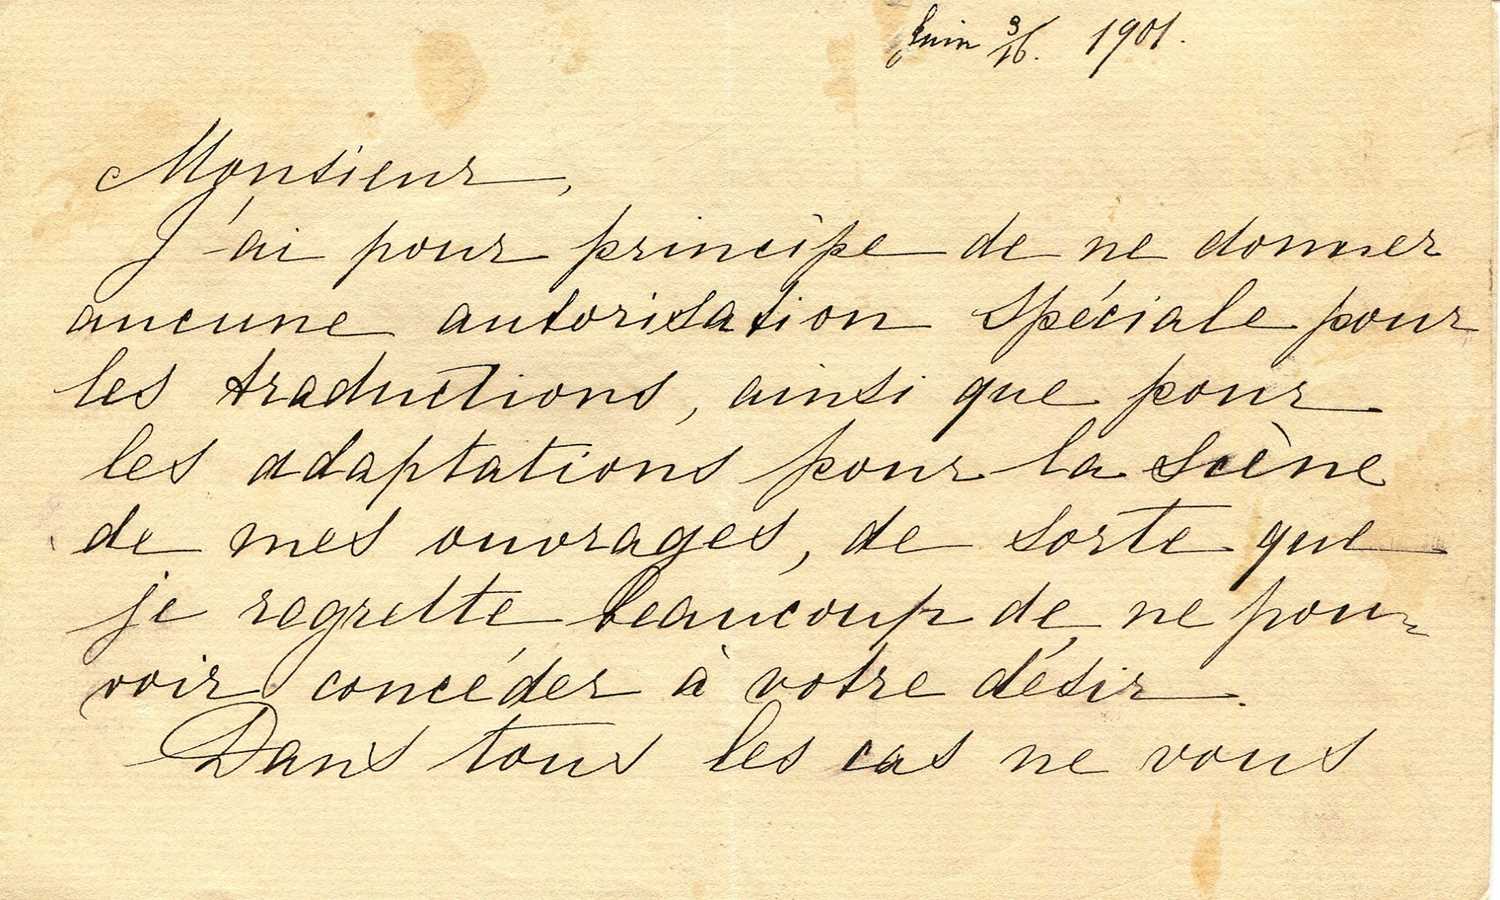 Juin 3/16. 1901.
Monsieur,
J'ai pour principe de ne donner
aucune autorisation spéciale pour
les traductions, ainsi que pour
les adaptations pour la scène
de mes ouvrages, de sorte que
je regrette beaucoup de ne pou-
voir concéder à votre désir.
Dans tous les cas ne vous